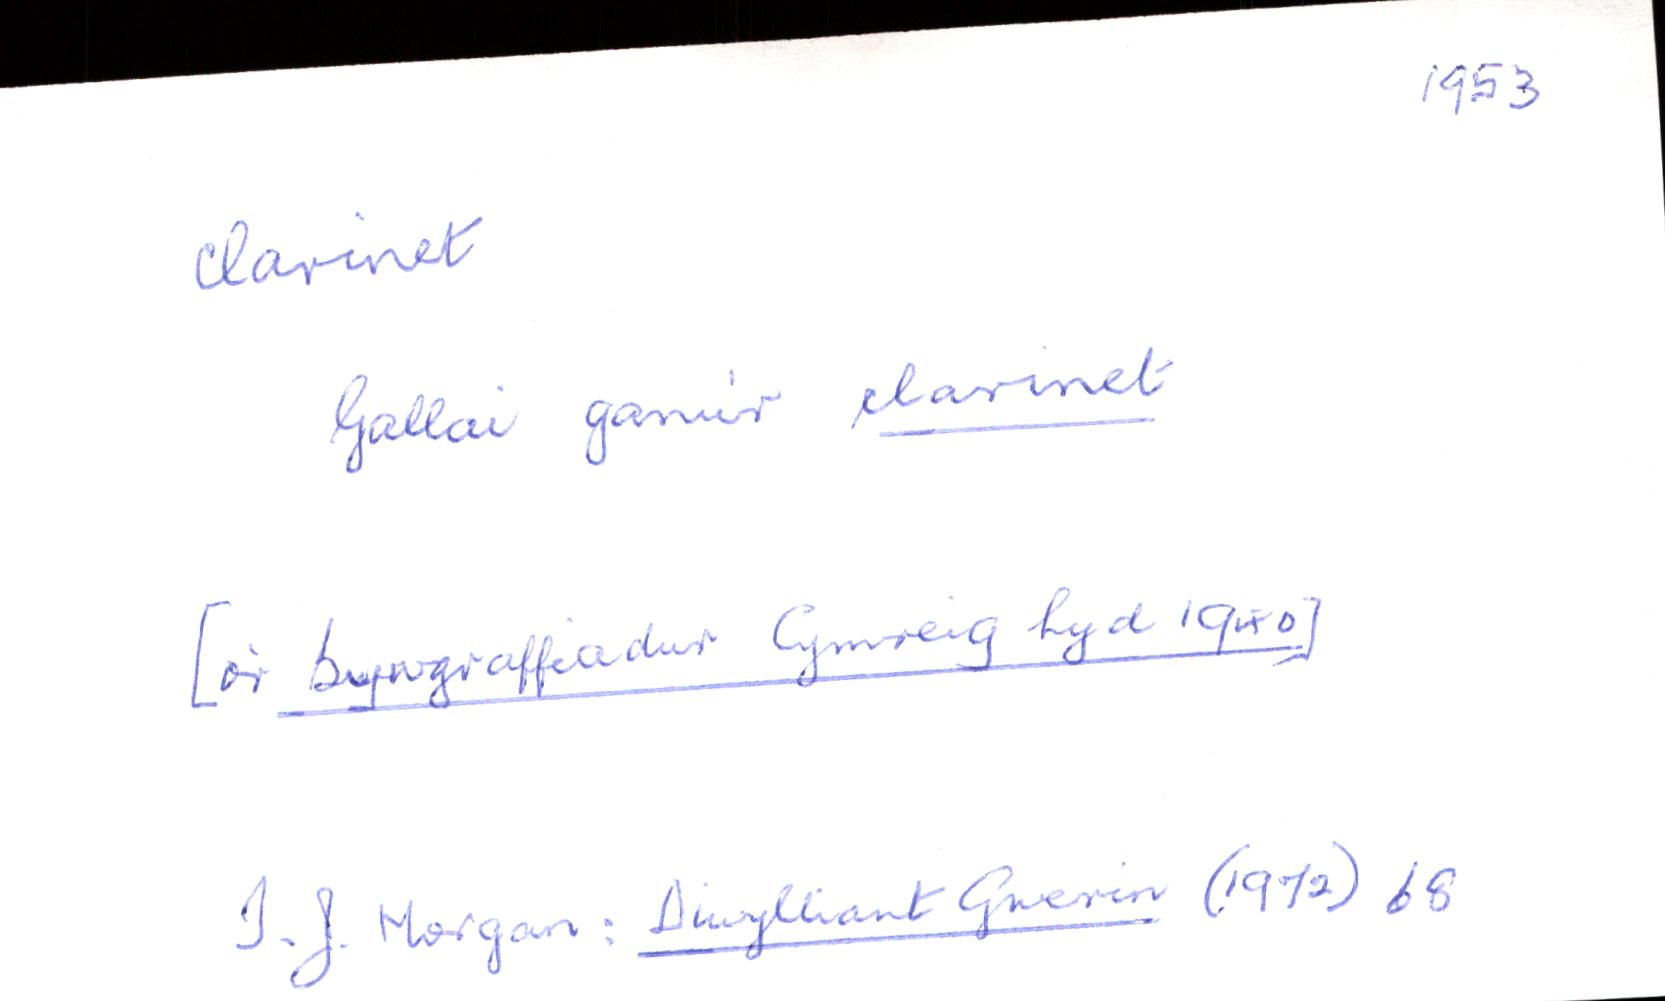 1953
clarinet
Gallai ganu'r clarinet
[o'r bywgraffiadur Cymreig hyd 1940]
T. J. Morgan: Diwylliant Gwerin (1972) 68